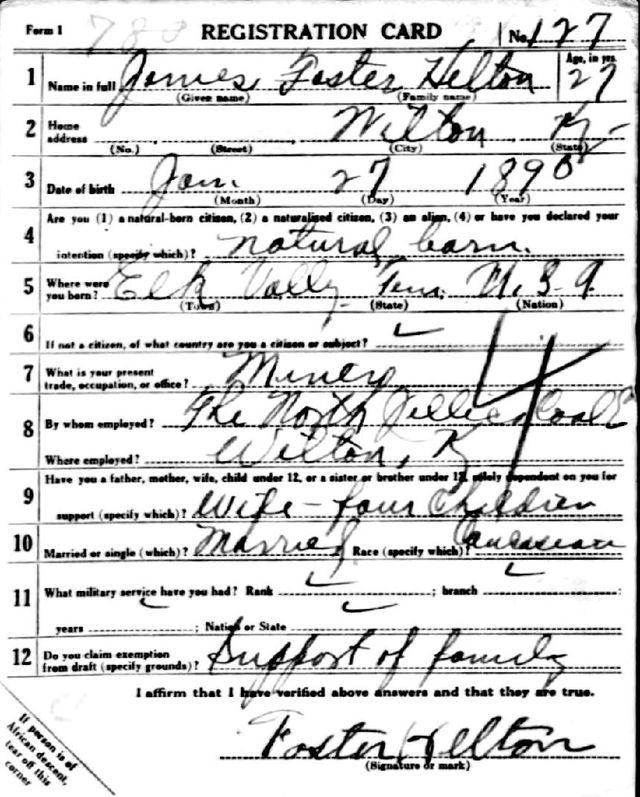 Form 1 REGISTRATION CARD No. 127
1 Name in full James Foster Helton Age, in yrs. 27
(Given name) (Family name)
2 Home address Wilton Ky-
(No.) (Street) (City) (State)
3 Date of birth Jan. 27 1890
(Month) (Day) (Year)
4 Are you (1) a natural-born citizen, (2) a naturalized citizen, (3) an alien, (4) or have you declared your
intention (specify which)? natural barn.
5 Where were you born? Elk Vally Tenn. U.S.A.
(Town) (State) (Nation)
6 If not a citizen, of what country are you a citizen or subject?
7 What is your present trade, occupation, or office? Miner
8 By whom employed? The North Jellico Coal
Where employed? Wilton, Ky
9 Have you a father, mother, wife, child under 12, or a sister or brother under 12, solely dependent on you for
support (specify which)? Wife - four Children
10 Married or single (which)? Married Race (specify which)? Caucasian
11 What military service have you had? Rank ; branch :
years ; Nation or State
12 Do you claim exemption from draft (specify grounds)? Support of family
I affirm that I have verified above answers and that they are true.
Foster Helton
(Signature or mark)
If person is of
African descent,
tear off this
corner